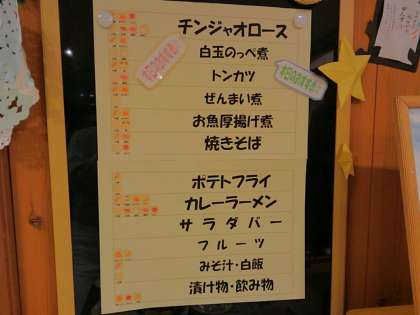 チンジャオロース
白玉のっぺ煮
トンカツ
ぜんまい煮
お魚厚揚げ煮
焼きそば
ポテトフライ
カレーラーメン
サラダバー
フルーツ
みそ汁・白飯
漬け物・飲み物